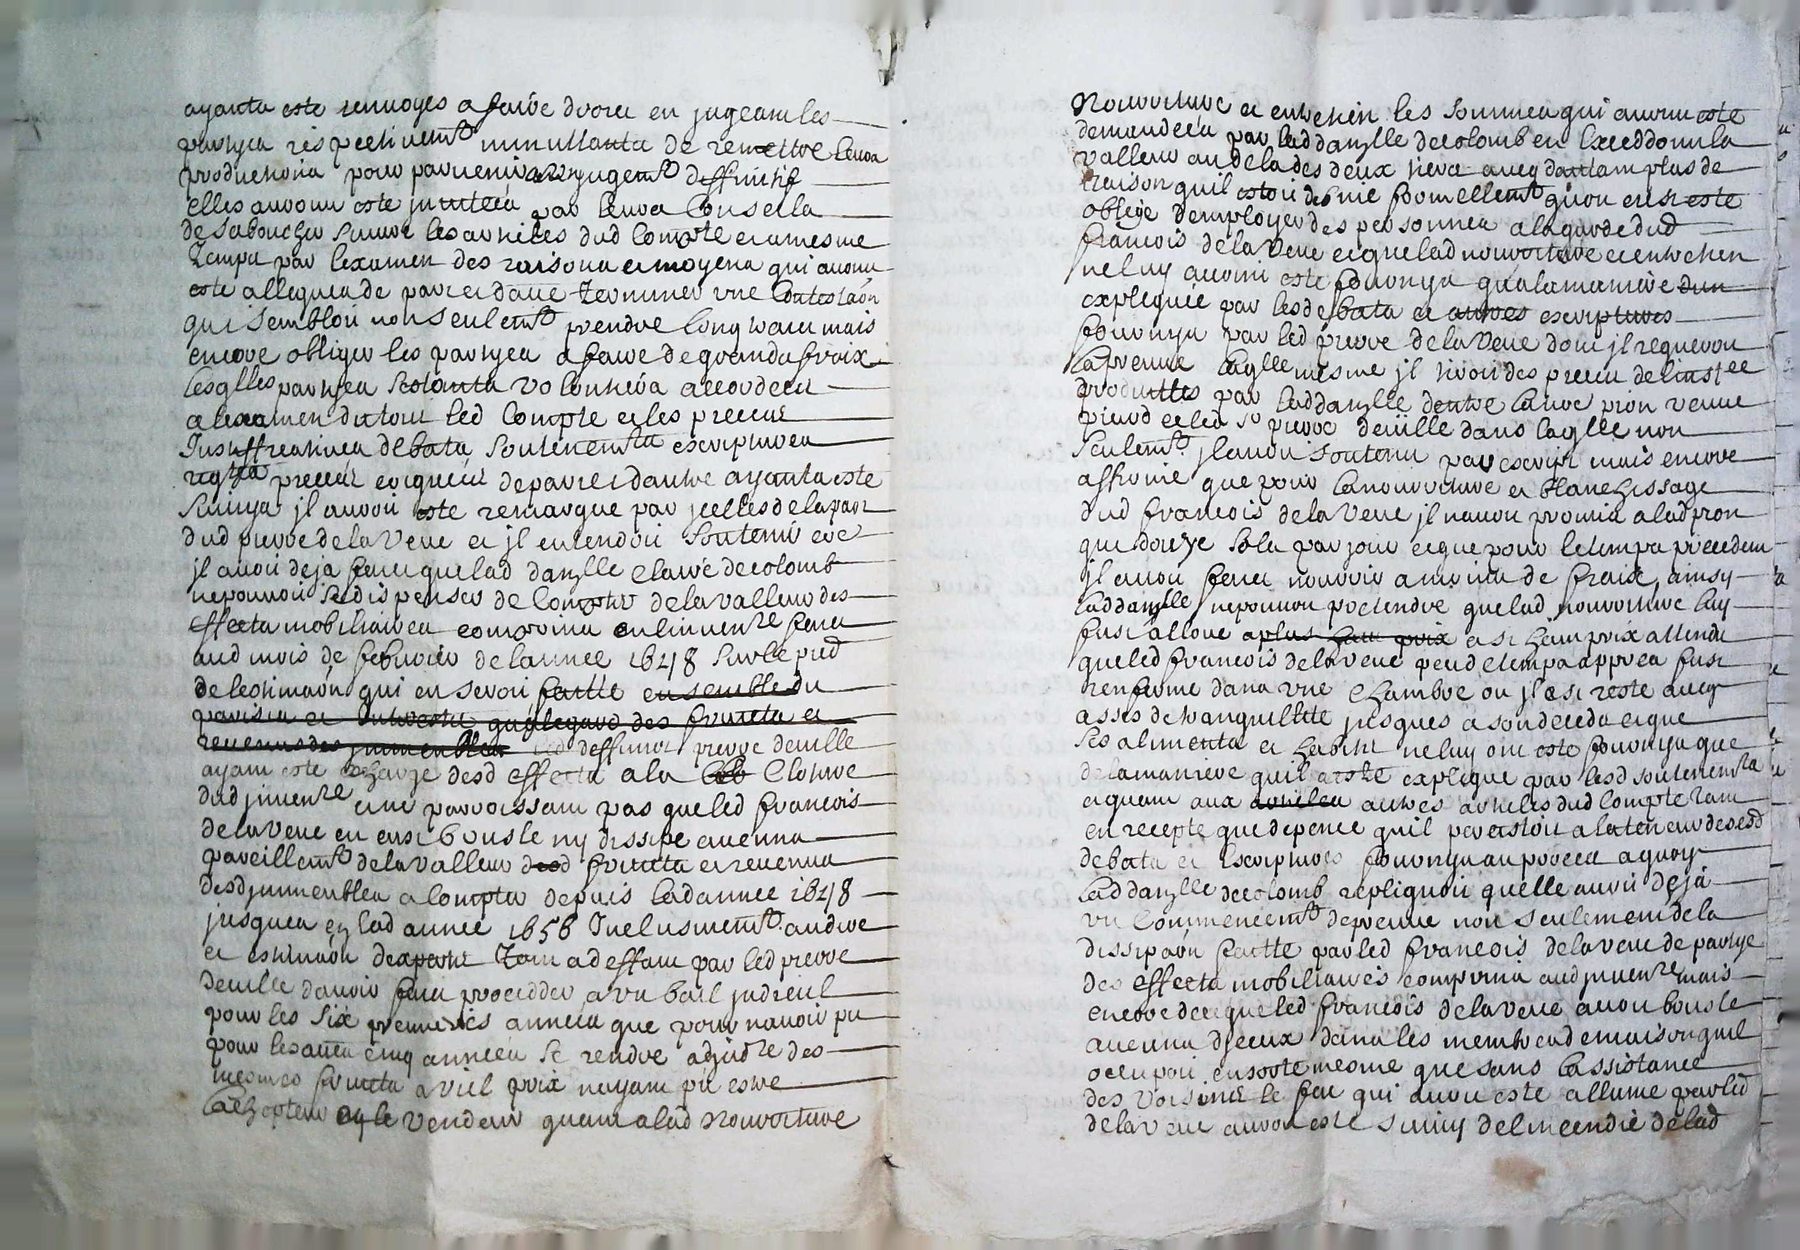 ayants este renvoyes a faire droict en jugeant les
partyes respectivemt nonobstants de remettre leurs
productions pour parvenir au jugemt deffinitif
elles auront este invitees par leurs Conseils
de saboucher suivre les articles dud Compte et a mesme
Temps par lexamen des raisons et moyens qui auront
este allegues de part et dautre terminer une Contestaon
qui sembloit non seulemt prendre long traict mais
encore obliger les partyes a faire de grands fraix
Lesqlles partyes sestants volontiers accordees
a lexamen du tout led Compte et les pieces
Justifficatives debats soutenemts escriptures
pieces de part et dautre ayants este
suivys jl auroit este remarque par jcelles de la part
dud pierre de la Vene et jl entendoit soutenir
jl auoit deja faict que lad dazlle Claire decolomb
ne pouuoit se dispenser de Compter de la valleur des
effects mobiliaires comprins en linuentre faict
aud mois de febvrier de lannee 1648 sur le pied
de lestimaon qui en seroit faitte ensemble du
revenus des jmmeubles led deffunct pierre deuille
ayant este charge desd effects a la Closture
dud jnuentre et ne parroissant pas que led francois
de la Vene en eust bousle ny dissipe aucuns
pareillemt de la valleur desd fruicts et revenus
desd jmmeubles a Compter depuis lad annee 1648
jusques en lad annee 1656 Inclusivemt au dire
et estimaon dexperts Tant a deffaut par led pierre
deuille dauoir faict procedder a un bail judiciel
pour les six premieres annees que pour nauoir pu
pour les autres cinq annees se rendre adjudre des
mesmes fruicts a viel prix nayant pu estre
Lachepteur et le Vendeur quant a lad Nourriture
Nourriture et entretien les sommes qui auront este
demandees par lad dazlle decolomb en lexceddont la
valleur au dela des deux tiers auecq dautant plus de
raison quil estoit denie formellemt quon eust este
oblige demployer des personnes a la garde dud
francois de la Vene et que lad nourriture et entretien
ne luy auront este fournys qua la maniere dun
expliquee par lesd debats et autres escriptures
fournys par led pierre de la Vene dont jl requeroit
la preuue Laqlle mesme jl tiroit des pieces
produittes par lad dazlle
pierre deuille dans laqlle non
seulemt jl auoit soutenu par escript mais encore
affirme que pour la nourriture et blanchissage
dud francois de la Vene jl nauoit promis a lad
que douze sols par jour et que pour le temps precedent
jl auoit faict nourrir a moins de fraix, ainsy
lad dazlle ne pouuoit pretendre que lad nourriture luy
fust alloue a plus haut prix a si haut prix attendu
que led francois de la Vene peu de temps appres fust
renferme dans une chambre ou jl a si reste auec
asses de tranquillite jusques a son deceds et que
ses aliments et habits ne luy ont este fournys que
de la maniere quil a este explique par lesd soutenemts
et quant aux articles autres articles dud Compte tant
en recepte que depence quil persistoit a la teneur desesd
debats et Escriptures fournys au proces a quoy
Lad dazlle decolomb repliquoit quelle auoit deja
un Commencemt de preuue non seulement de la
dissipaon faitte par led francois de la Vene de partye
des effects mobiliaires comprins aud jnuentre mais
encore de ce que led francois de la Vene auoit bousle
aucuns djceux dans les membres de maison quil
occupoit en sorte mesme que sans Lassistance
des voisins le feu qui auoit este allume par led
de la Vene auroit este suivy de lincendie de lad